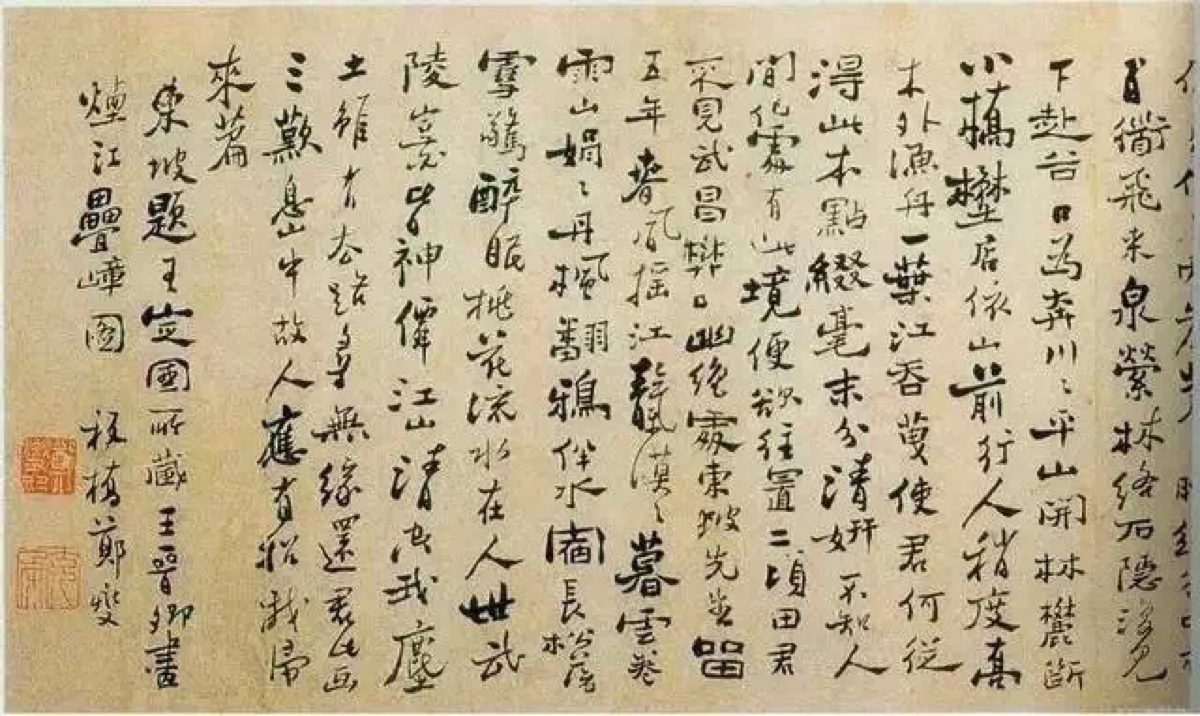 百衜飛来泉縈林絡石隱復見
下赴谷口為奔川川平山開林麓斷
小橋壄店依山前行人稍度喬
木外漁舟一葉江吞天使君何從
得此本點綴毫末分清妍不知人
間何處有此境便欲往置二頃田君
不見武昌樊口幽絕處東坡先生留
五年春風搖江靝漠漠暮雲卷
雨山娟娟丹楓翻鴉伴水宿長松落
雪驚醉眠桃花流水在人世武
陵豈必皆神僊江山清空我塵
土雖有去路尋無緣還君此画
三歎息山中故人應有招我歸
來篇
東坡題王定國所藏王晉卿畫
煙江疊嶂圖 板橋鄭燮